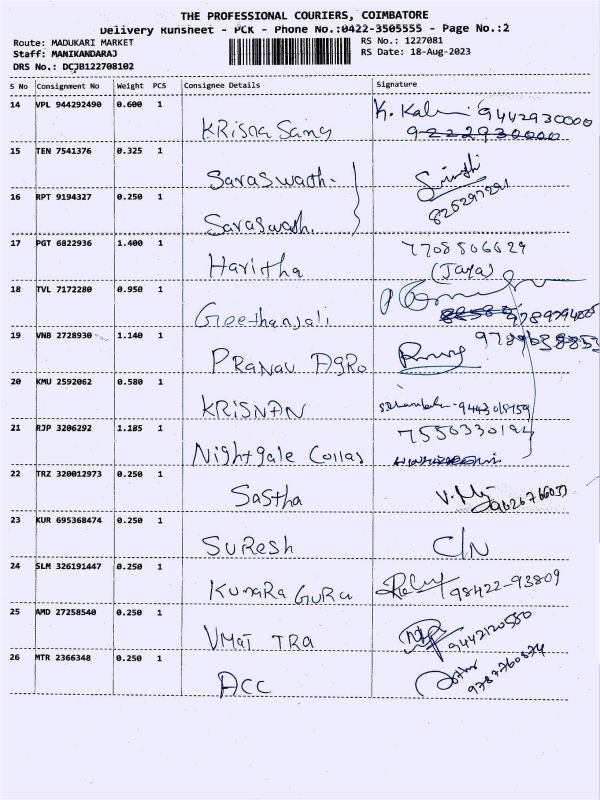 THE PROFESSIONAL COURIERS, COIMBATORE
Delivery Runsheet - PCK - Phone No.:0422-3505555 - Page No.:2
Route: MADUKARI MARKET
RS No.: 1227081
Staff: MANIKANDARAJ
RS Date: 18-Aug-2023
DRS No.: DCJB122708102
S No Consignment No Weight PCS Consignee Details Signature
14 VPL 944292490 0.600 1 K. 9442930000
KRisna
15 TEN 7541376 0.325 1
Saraswath.
16 RPT 9194327 0.250 1
Saraswath.
17 PGT 6822936 1.400 1 7708506629
Haritha (Jaya)
18 TVL 7172280 0.950 1
Geethanjali
19 VNB 2728930 1.140 1
PRANAV AGRO
20 KMU 2592062 0.580 1
KRISNAN
21 RJP 3206292 1.185 1
Nightgale Collas
22 TRZ 320012973 0.250 1
Sastha
23 KUR 695368474 0.250 1
SUResh C/N
24 SLM 326191447 0.250 1
KumaRa GuRu 98422-93809
25 AMD 27258540 0.250 1
VMAT TRA 9442120550
26 MTR 2366348 0.250 1
ACC